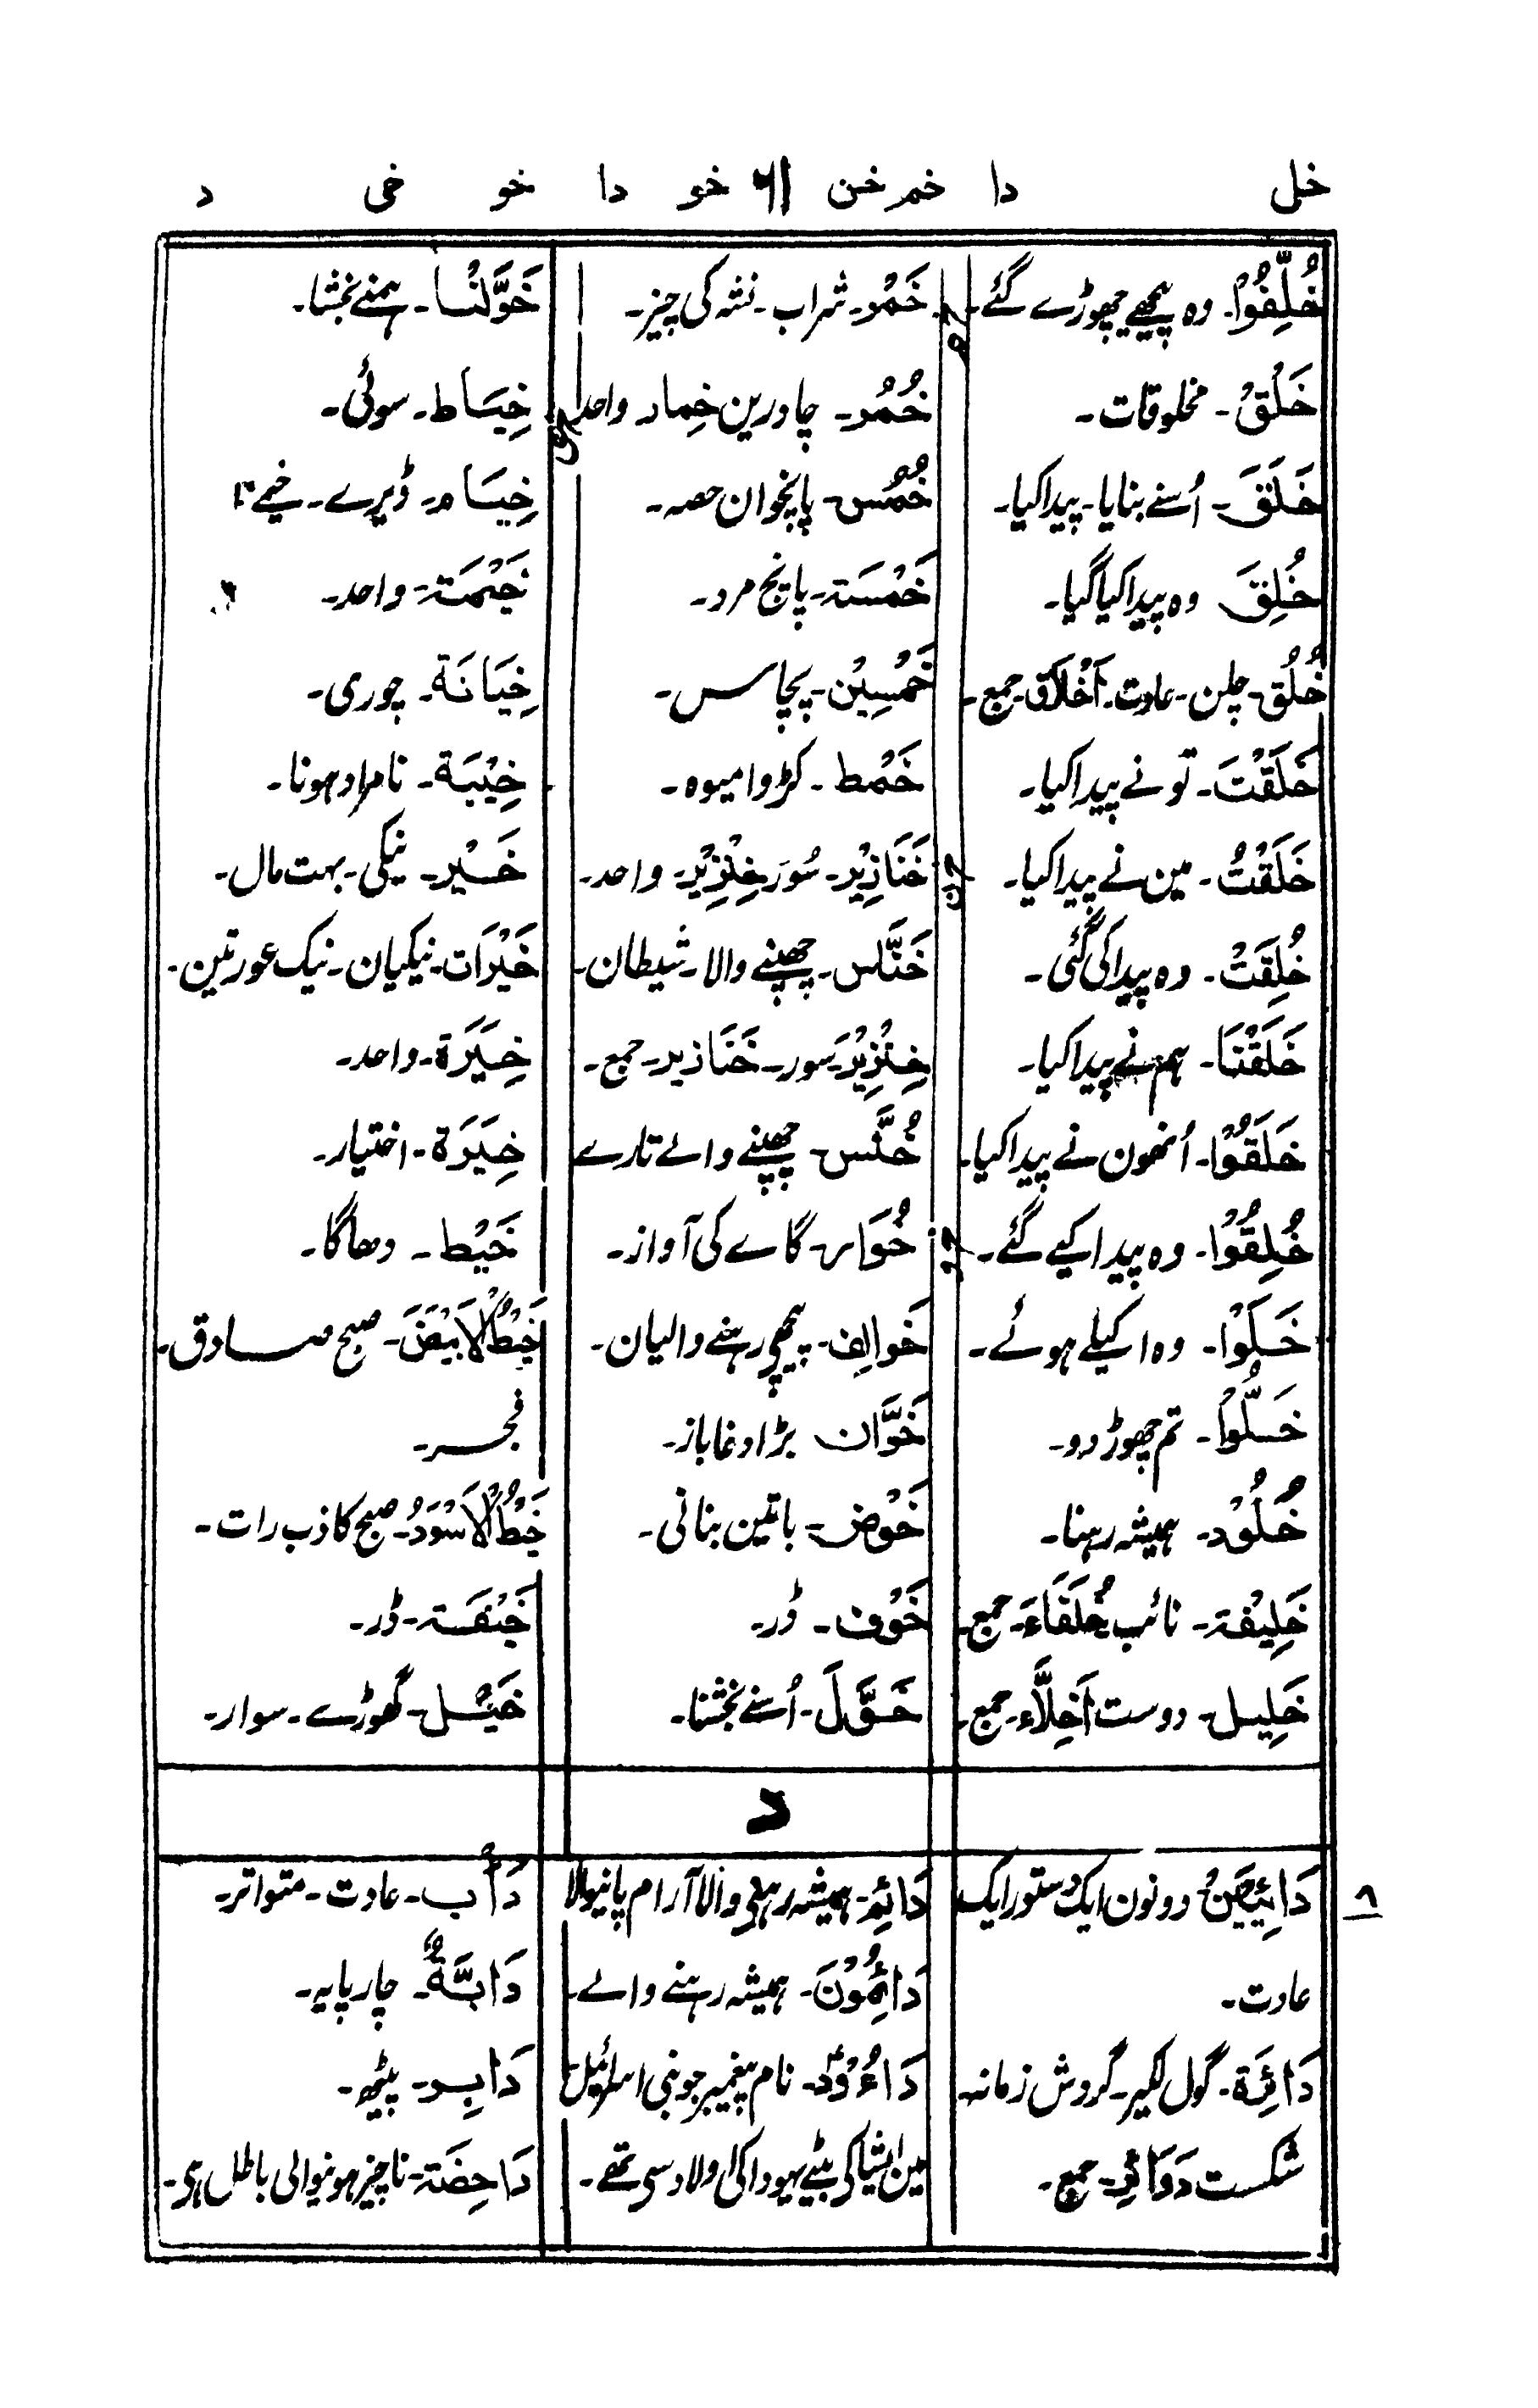 خل دا خمر خن ۶۱ خو دا خو خی د
خُلِّفُوْا۔ وہ پیچھے چھوڑے گئے۔
خَلْقُ۔ مخلوقات۔
خَلَقَ۔ اُسنے بنایا۔ پیدا کیا۔
خُلِقَ وہ پیدا کیا گیا۔
خُلُق۔ چلن۔ عادت۔ اَخْلَاق۔ جمع۔
خَلَقْتَ۔ تو نے پیدا کیا۔
خَلَقْتُ۔ مین نے پیدا کیا۔
خُلِقَتْ۔ وہ پیدا کی گئی۔
خَلَقْنَا۔ ہم نے پیدا کیا۔
خَلَقُوْا۔ اُنھون نے پیدا کیا۔
خُلِقُوْا۔ وہ پیدا کیے گئے۔
خَلَوْا۔ وہ اکیلے ہوئے۔
خَلُّوْا۔ تم چھوڑ دو۔
خُلُوْد۔ ہمیشہ رہنا۔
خَلِیْفَۃ۔ نائب خُلَفَاءَ۔ جمع۔
خَلِیل۔ دوست اَخِلَّاء۔ جمع۔
خم
خَمْر۔ شراب۔ نشہ کی چیز۔
خُمُر۔ چادرین خِمار واحد
خُمُس۔ پانچوان حصہ۔
خَمْسَۃ۔ پانچ مرد۔
خَمْسِیْن۔ پچاس۔
خَمْط۔ کڑوا میوہ۔
خن
خَنَازِیْر۔ سُور خِنْزِیْر۔ واحد۔
خَنَّاس۔ چھپنے والا۔ شیطان۔
خِنْزِیْرَ۔ سور۔ خَنَازیر۔ جمع۔
خُنَّس۔ چھپنے والے تارے
خو
خُوَار۔ گاے کی آواز۔
خَوالِف۔ پیچھے رہنے والیان۔
خَوَّان بڑا دغا باز۔
خَوْض۔ باتین بنانی۔
خَوْف۔ ڈر۔
خَوَّلَ۔ اُسنے بخشا۔
خَوَّلْنَا۔ ہمنے بخشا۔
خی
خِیَاط۔ سوئی۔
خِیَام۔ ڈیرے۔ خیمے
خَیْمَۃ۔ واحد۔
خِیَانَۃ۔ چوری۔
خِیْبَۃ۔ نامراد ہونا۔
خَیْر۔ نیکی۔ بہت مال۔
خَیْرَات۔ نیکیان۔ نیک عورتین۔
خِیَرَۃ۔ واحد۔
خِیَرَۃ۔ اختیار۔
خَیْط۔ دھاگا۔
خَیْطُ الْاَبْیَضَ۔ صبح صادق۔
فجر۔
خَیْطُ الْاَسْوَدُ۔ صبح کاذب رات۔
خَیْفَۃ۔ ڈر۔
خَیْل۔ گھوڑے۔ سوار۔
د
دونون ایک دستور ایک
عادت۔
دَائِرَۃ۔ گول لکیر۔ گردش زمانہ
شکست دَوَائِر۔ جمع۔
دَائِم۔ ہمیشہ رہنے والا آرام پانیوالا
دَائِمُوْنَ۔ ہمیشہ رہنے والے۔
دَاءُوْدَ۔ نام پیغمبر جو بنی اسرائیل
مین ایشا کے بیٹے یہودا کی اولاد سی تھے۔
دَأْب۔ عادت۔ متواتر۔
دَابَّۃٌ۔ چارپایہ۔
دَابِر۔ پیٹھ۔
دَاحِضَۃ۔ ناچیز ہونیوالی باطل ہی۔